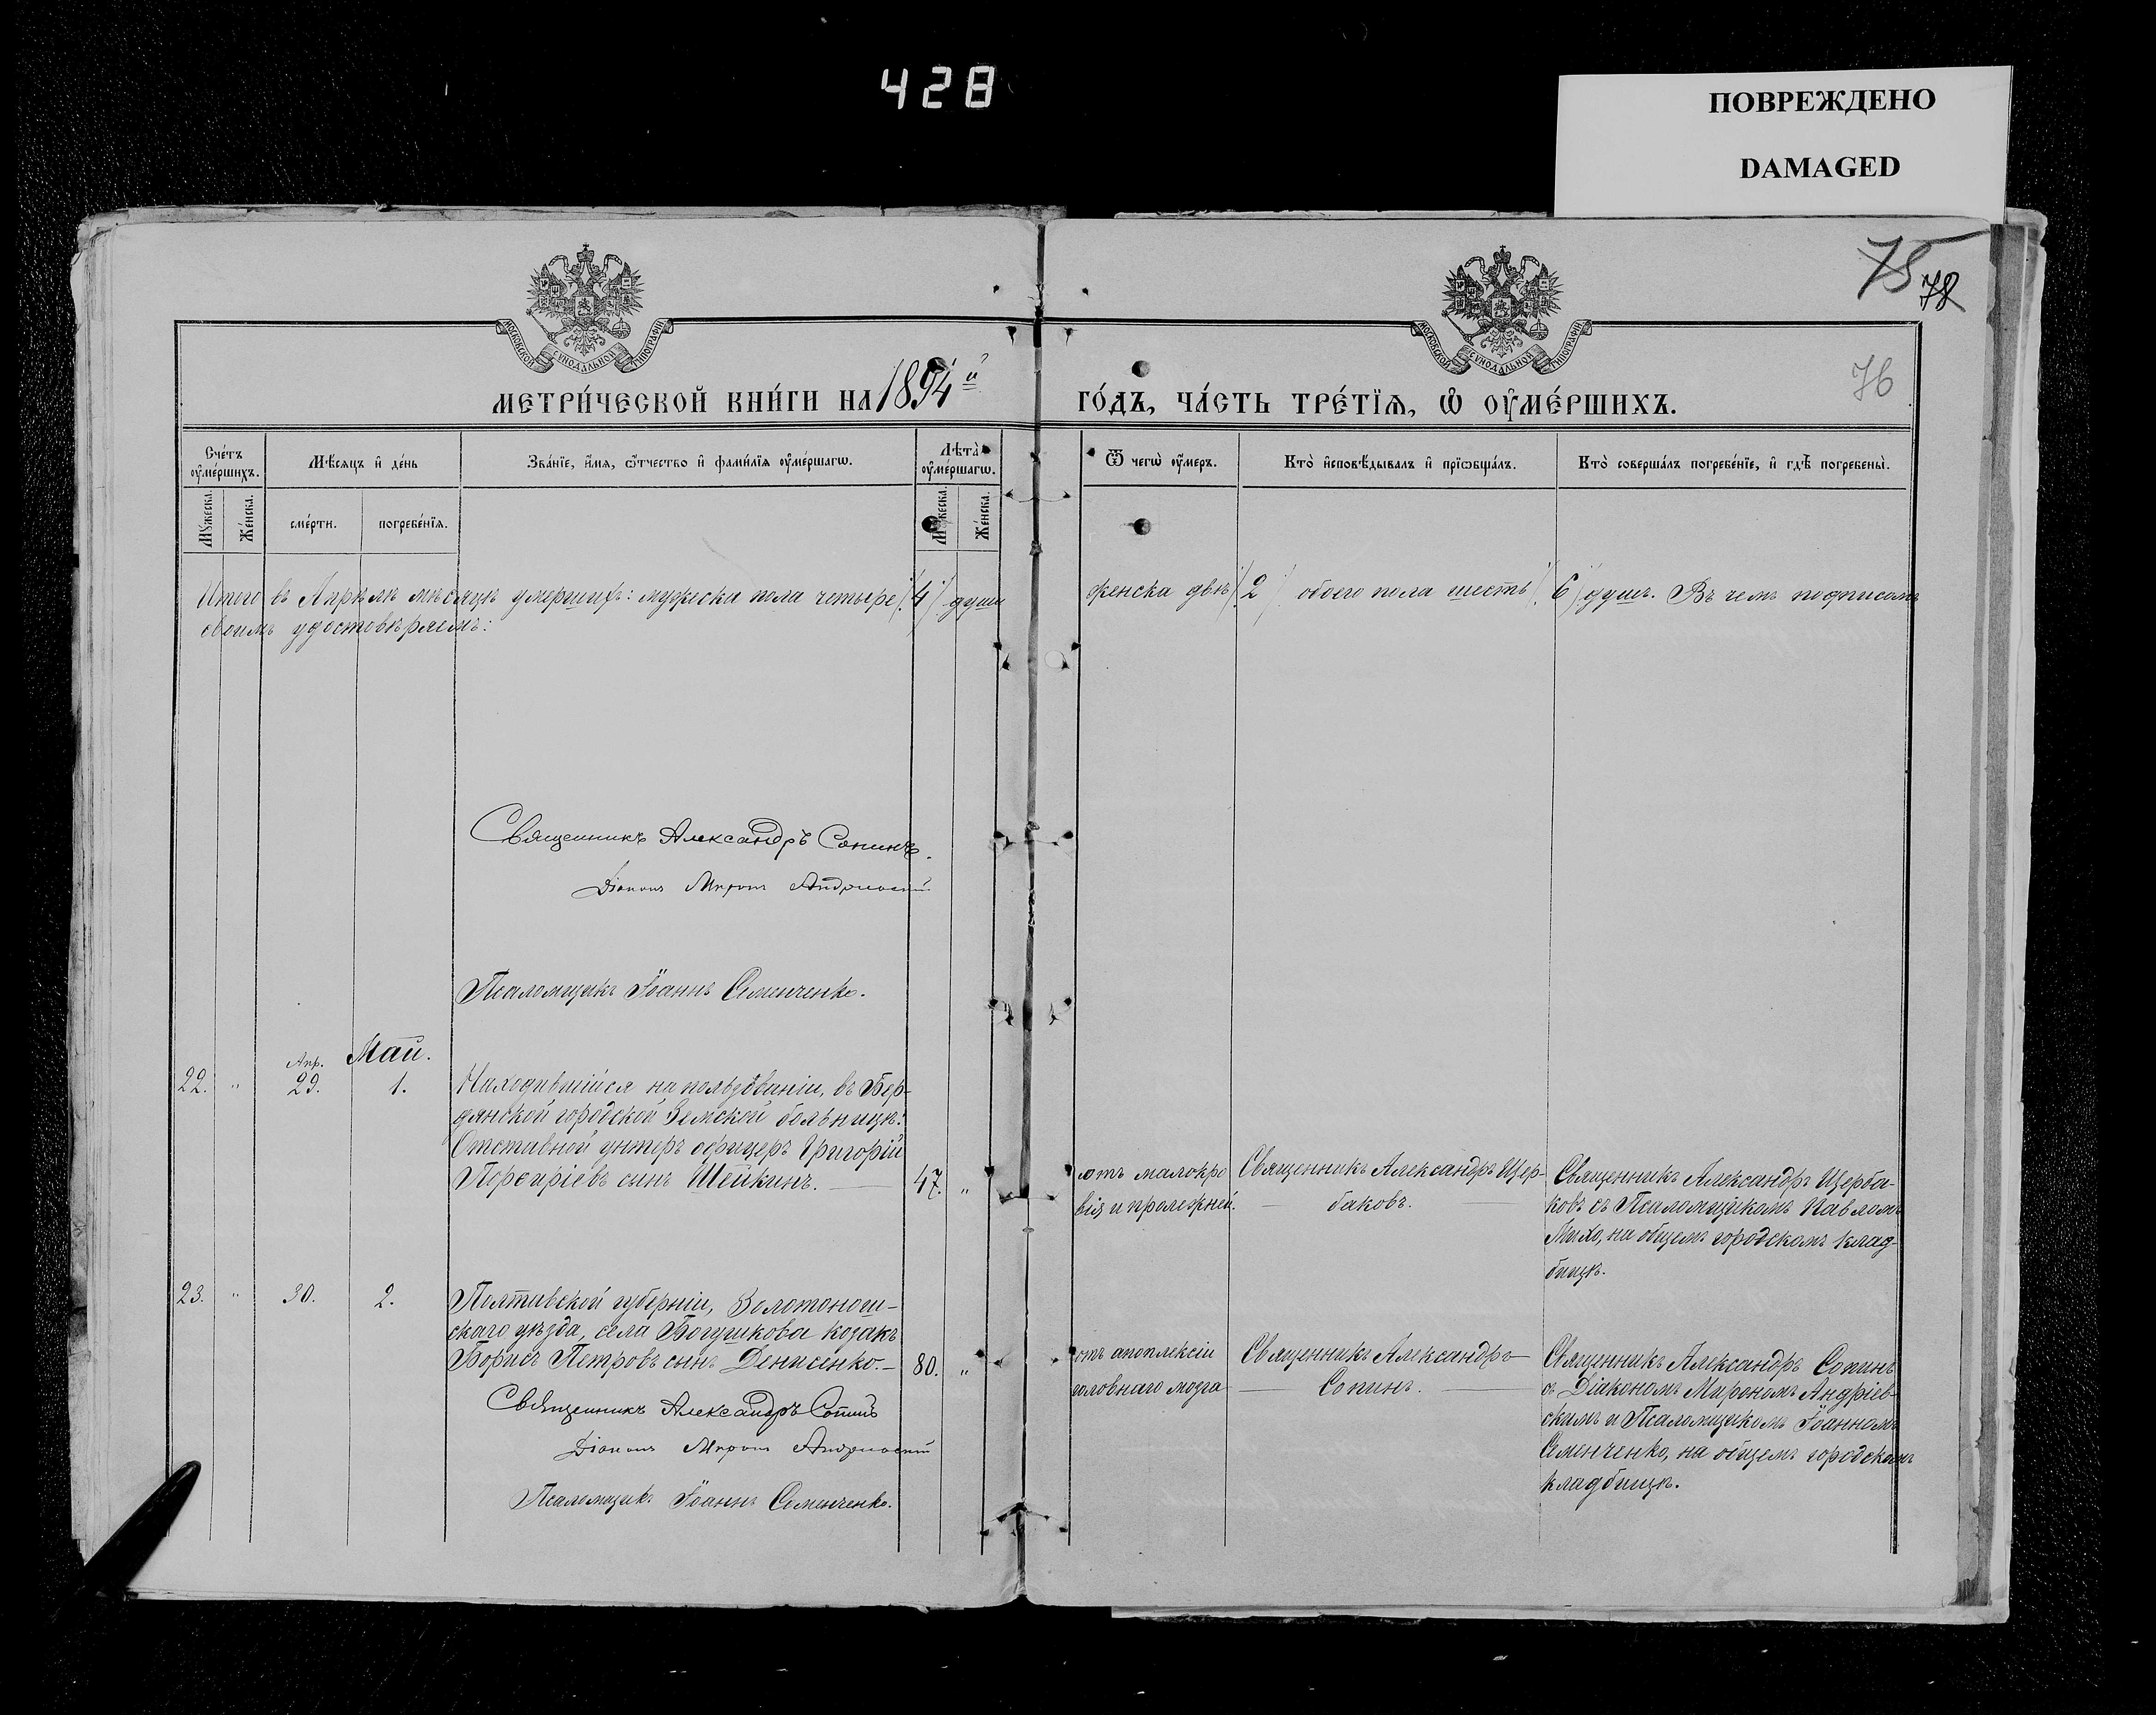 428
ПОВРЕЖДЕНО
DAMAGED
75 78
76
МОСКОВСКОЙ СѴНОДАЛЬНОЙ ТИПОГРАФІИ
МОСКОВСКОЙ СѴНОДАЛЬНОЙ ТИПОГРАФІИ
МЕТРИ́ЧЕСКОЙ КНИ́ГИ НА 1894й ГО́ДЪ, ЧА́СТЬ ТРЕ́ТЇѦ, Ѡ҆ ОУ҆МЕ́РШИХЪ.
Сче́тъ оу҆ме́ршихъ.
Мѣ́сѧцъ и҆ де́нь
Зва́нїе, и҆́мѧ, ѻ҆́тчество и҆ фами́лїѧ оу҆ме́ршагѡ.
Лѣта̀ оу҆ме́ршагѡ.
Ѿ чегѡ̀ оу҆́меръ.
Кто̀ и҆сповѣ́дывалъ и҆ прїѡбща́лъ.
Кто̀ соверша́лъ погребе́нїе, и҆ гдѣ̀ погребены̀.
Мꙋ́жеска. Же́нска. сме́рти. погребе́нїѧ. Мꙋ́жеска. Же́нска.
Итого въ Апрѣлѣ мѣсяцѣ умершихъ: мужеска пола четыре /4/ души женска двѣ /2/ обоего пола шесть /6/ душъ. Въ чемъ подписомъ
своимъ удостовѣряемъ:
Священникъ Александръ Сопинъ.
Діаконъ Миронъ Андріевскій
Псаломщикъ Іоаннъ Семенченко.
Апр. Май.
22. " 29. 1. Находившійся на пользованіи, въ Бер-
дянской городской Земской больницѣ:
Отставной унтеръ офицеръ Григорій
Порфиріевъ сынъ Шейкинъ. — 47. "
отъ малокро
вія и пролежней.
Священникъ Александръ Щер-
баковъ.
Священникъ Александръ Щерба-
ковъ съ Псаломщикомъ Павломъ
на общемъ городскомъ клад-
бищѣ.
23. " 30. 2. Полтавской губерніи, Золотонош-
скаго уѣзда, села Богушкова козакъ
Борисъ Петровъ сынъ Денисенко. — 80. "
отъ апоплексіи
головнаго мозга
Священникъ Александръ
Сопинъ.
Священникъ Александръ Сопинъ
съ Діакономъ Мирономъ Андріев-
скимъ и Псаломщикомъ Іоанномъ
Семенченко, на общемъ городскомъ
кладбищѣ.
Священникъ Александръ Сопинъ
Діаконъ Миронъ Андріевскій
Псаломщикъ Іоаннъ Семенченко.